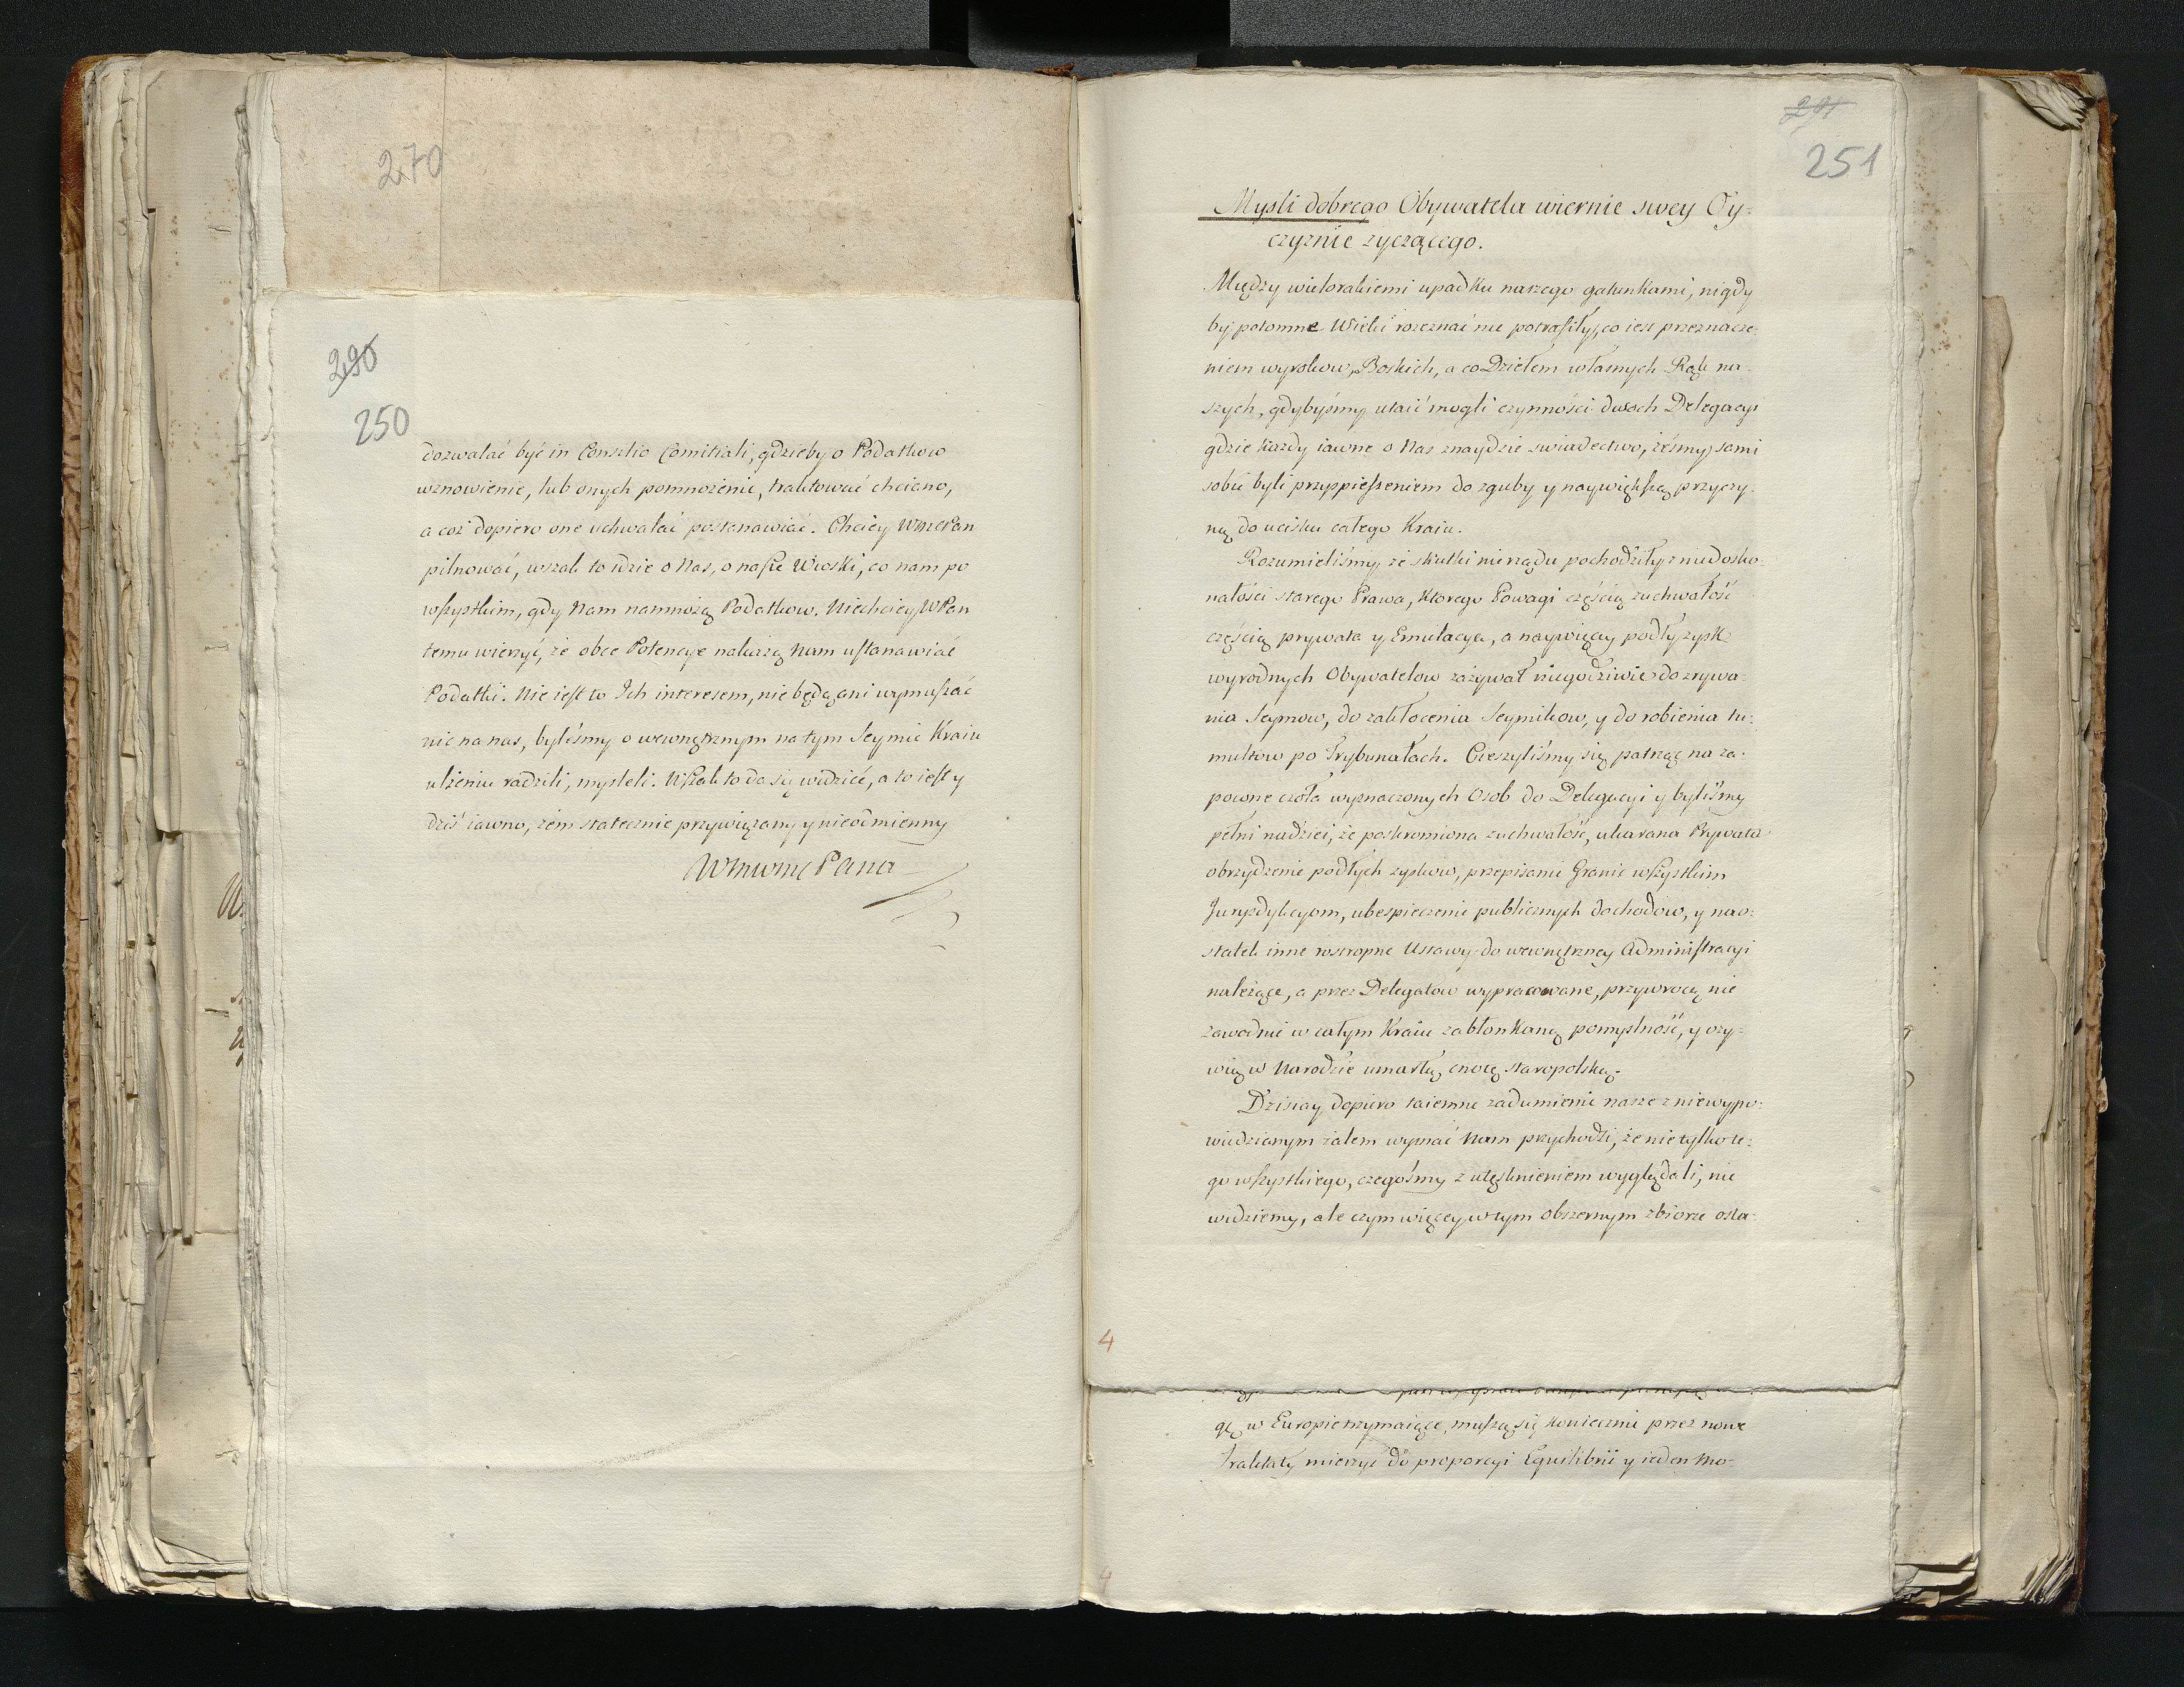 270
290
250
dozwalać być in Consilio Comitiali, gdzieby o Podatkow
wznowienie, lub onych pomnożenie, traktować chciano,
a coż dopiero one uchwałać postanawiać. Chciey WmcPan
pilnować, wszak to idzie o Nas, o nasze Wioski, co nam po
wszystkim, gdy Nam namnożą Podatkow. Niechciey WPan
temu wierzyć, że obce Potencye nakażą Nam ustanawiać
Podatki. Nie iest to Ich interesem, nie będą ani wymuszać
nic na nas, byliśmy o wewnętrznym na tym Seymie Kraiu
ulżeniu radzili, mysleli. Wszak to da się widzieć, a to iest y
dziś iawno, żem statecznie przywiązany y nieodmienny
WmwmcPana
291
251
Mysli dobrego Obywatela wiernie swey Oy-
czyznie zyczącego.
Między wielorakiemi upadku naszego gatunkami, nigdy
by potomne Wieki rozeznać nie potrafiły, co iest przeznacze-
niem wyrokow Boskich, a co Dziełem własnych Rąk na-
szych, gdybyśmy utaić mogli czynności dwoch Delegacyi
gdzie każdy iawne o Nas znaydzie swiadectwo, żeśmy sami
sobie byli przyspieszeniem do zguby y naywiększą przyczy-
ną do ucisku całego Kraiu.
Rozumieliśmy, że skutki nierządu pochodziły z niedosko-
nałości starego Prawa, ktorego Powagi częścią zuchwałość
częścią prywata y Emulacya, a naywięcey podły zysk
wyrodnych Obywatelow zażywał niegodziwie do zrywa-
nia Seymow, do zakłocenia Seymikow, y do robienia tu-
multow po Trybunałach. Cieszyliśmy się patrząc na za-
pewne czoła wyznaczonych Osob do Delegacyi y byliśmy
pełni nadziei, że poskromiona zuchwałość, ukarana Prywata
obrzydzenie podłych zyskow, przepisanie Granic wszystkim
Juryzdykcyom, ubespieczenie publicznych dochodow, y nao-
statek inne rostropne Ustawy do wewnętrzney Administracyi
należące, a przez Delegatow wypracowane, przywrocą nie
zawodnie w całym Kraiu zabłonkaną pomyslność, y ozy-
wią w Narodzie umarłą cnotę staropolską.
Dzisiay dopiero taiemne zadumienie nasze z niewypo-
wiedzianym żalem wyznać Nam przychodzi, że nietylko te-
go wszystkiego, czegośmy z utęsknieniem wyglądali, nie
widziemy, ale czym więcey w tym obszernym zbiorze osta-
4
gę w Europie trzymaiące, muszą się koniecznie przez nowe
Traktaty mierzyć do proporcyi Equilibrii y ieden Mo-
4